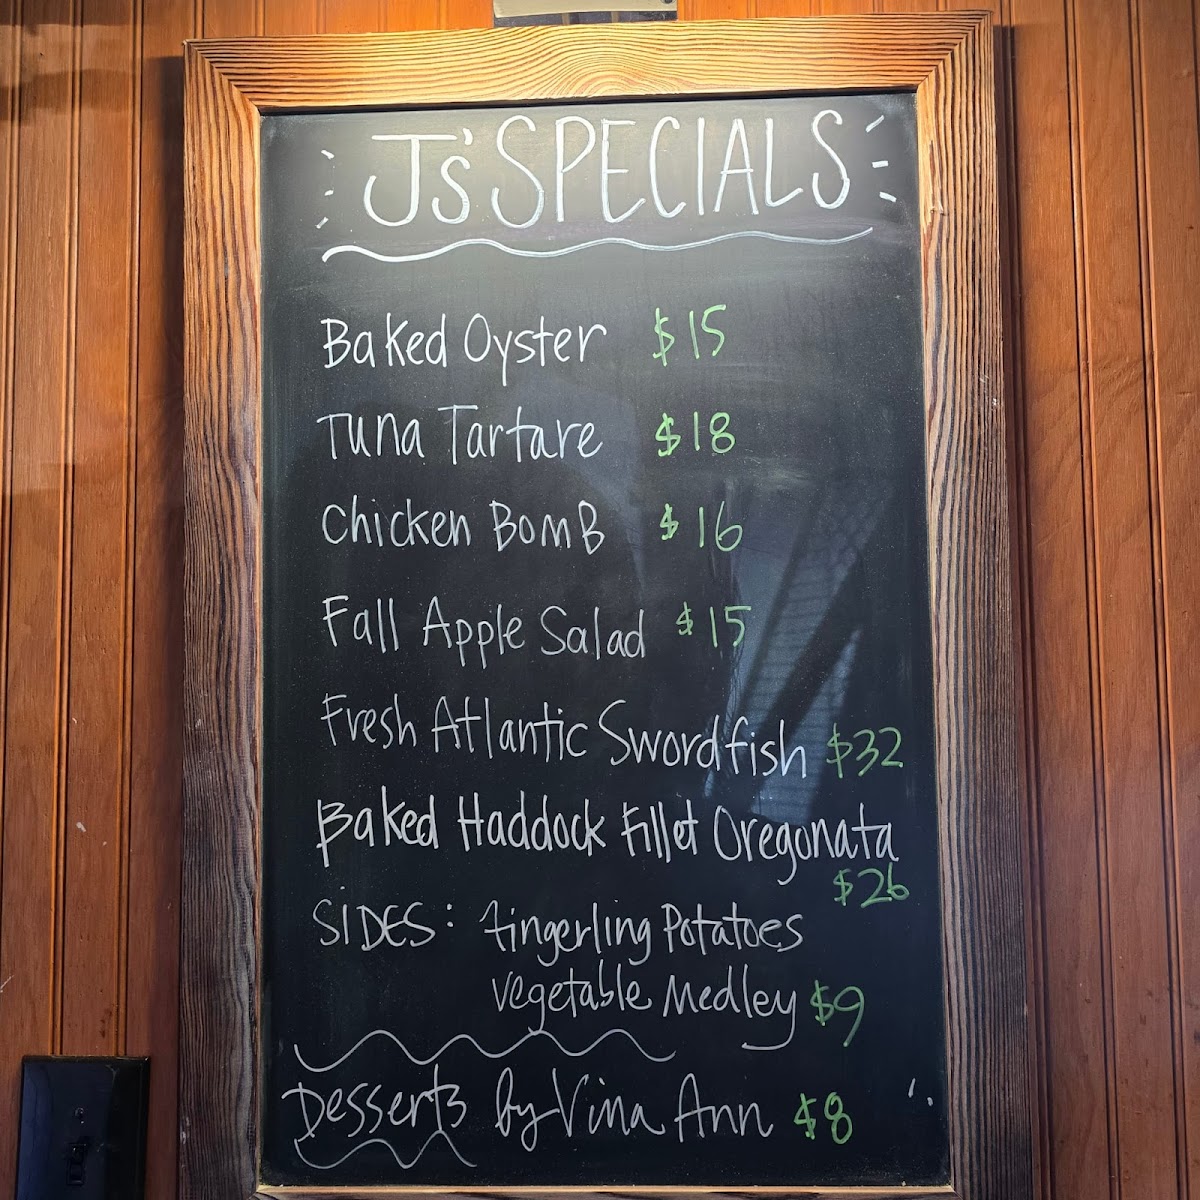 Js' SPECIALS
Baked Oyster $15
Tuna Tartare $18
Chicken BomB $16
Fall Apple Salad $15
Fresh Atlantic Swordfish $32
Baked Haddock Fillet Oregonata
$26
SIDES: fingerling Potatoes
vegetable Medley $9
Desserts by Vina Ann $8